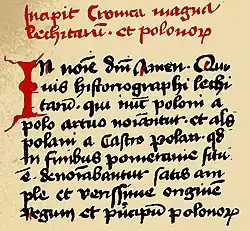 Incipit Cronica magna
lechitarū · et polonoꝝ
In noīe dn̄i Amen · Quī
uis historiographi lechi
tarū · qui nūc poloni a
polo artuo noīantur · et al̄s
polani a Castro polan · qd̄
in finibus pomeranie situ
ē · denoīabantur satis am
ple et verissime originē
Regum et pn̄cipū polonoꝝ